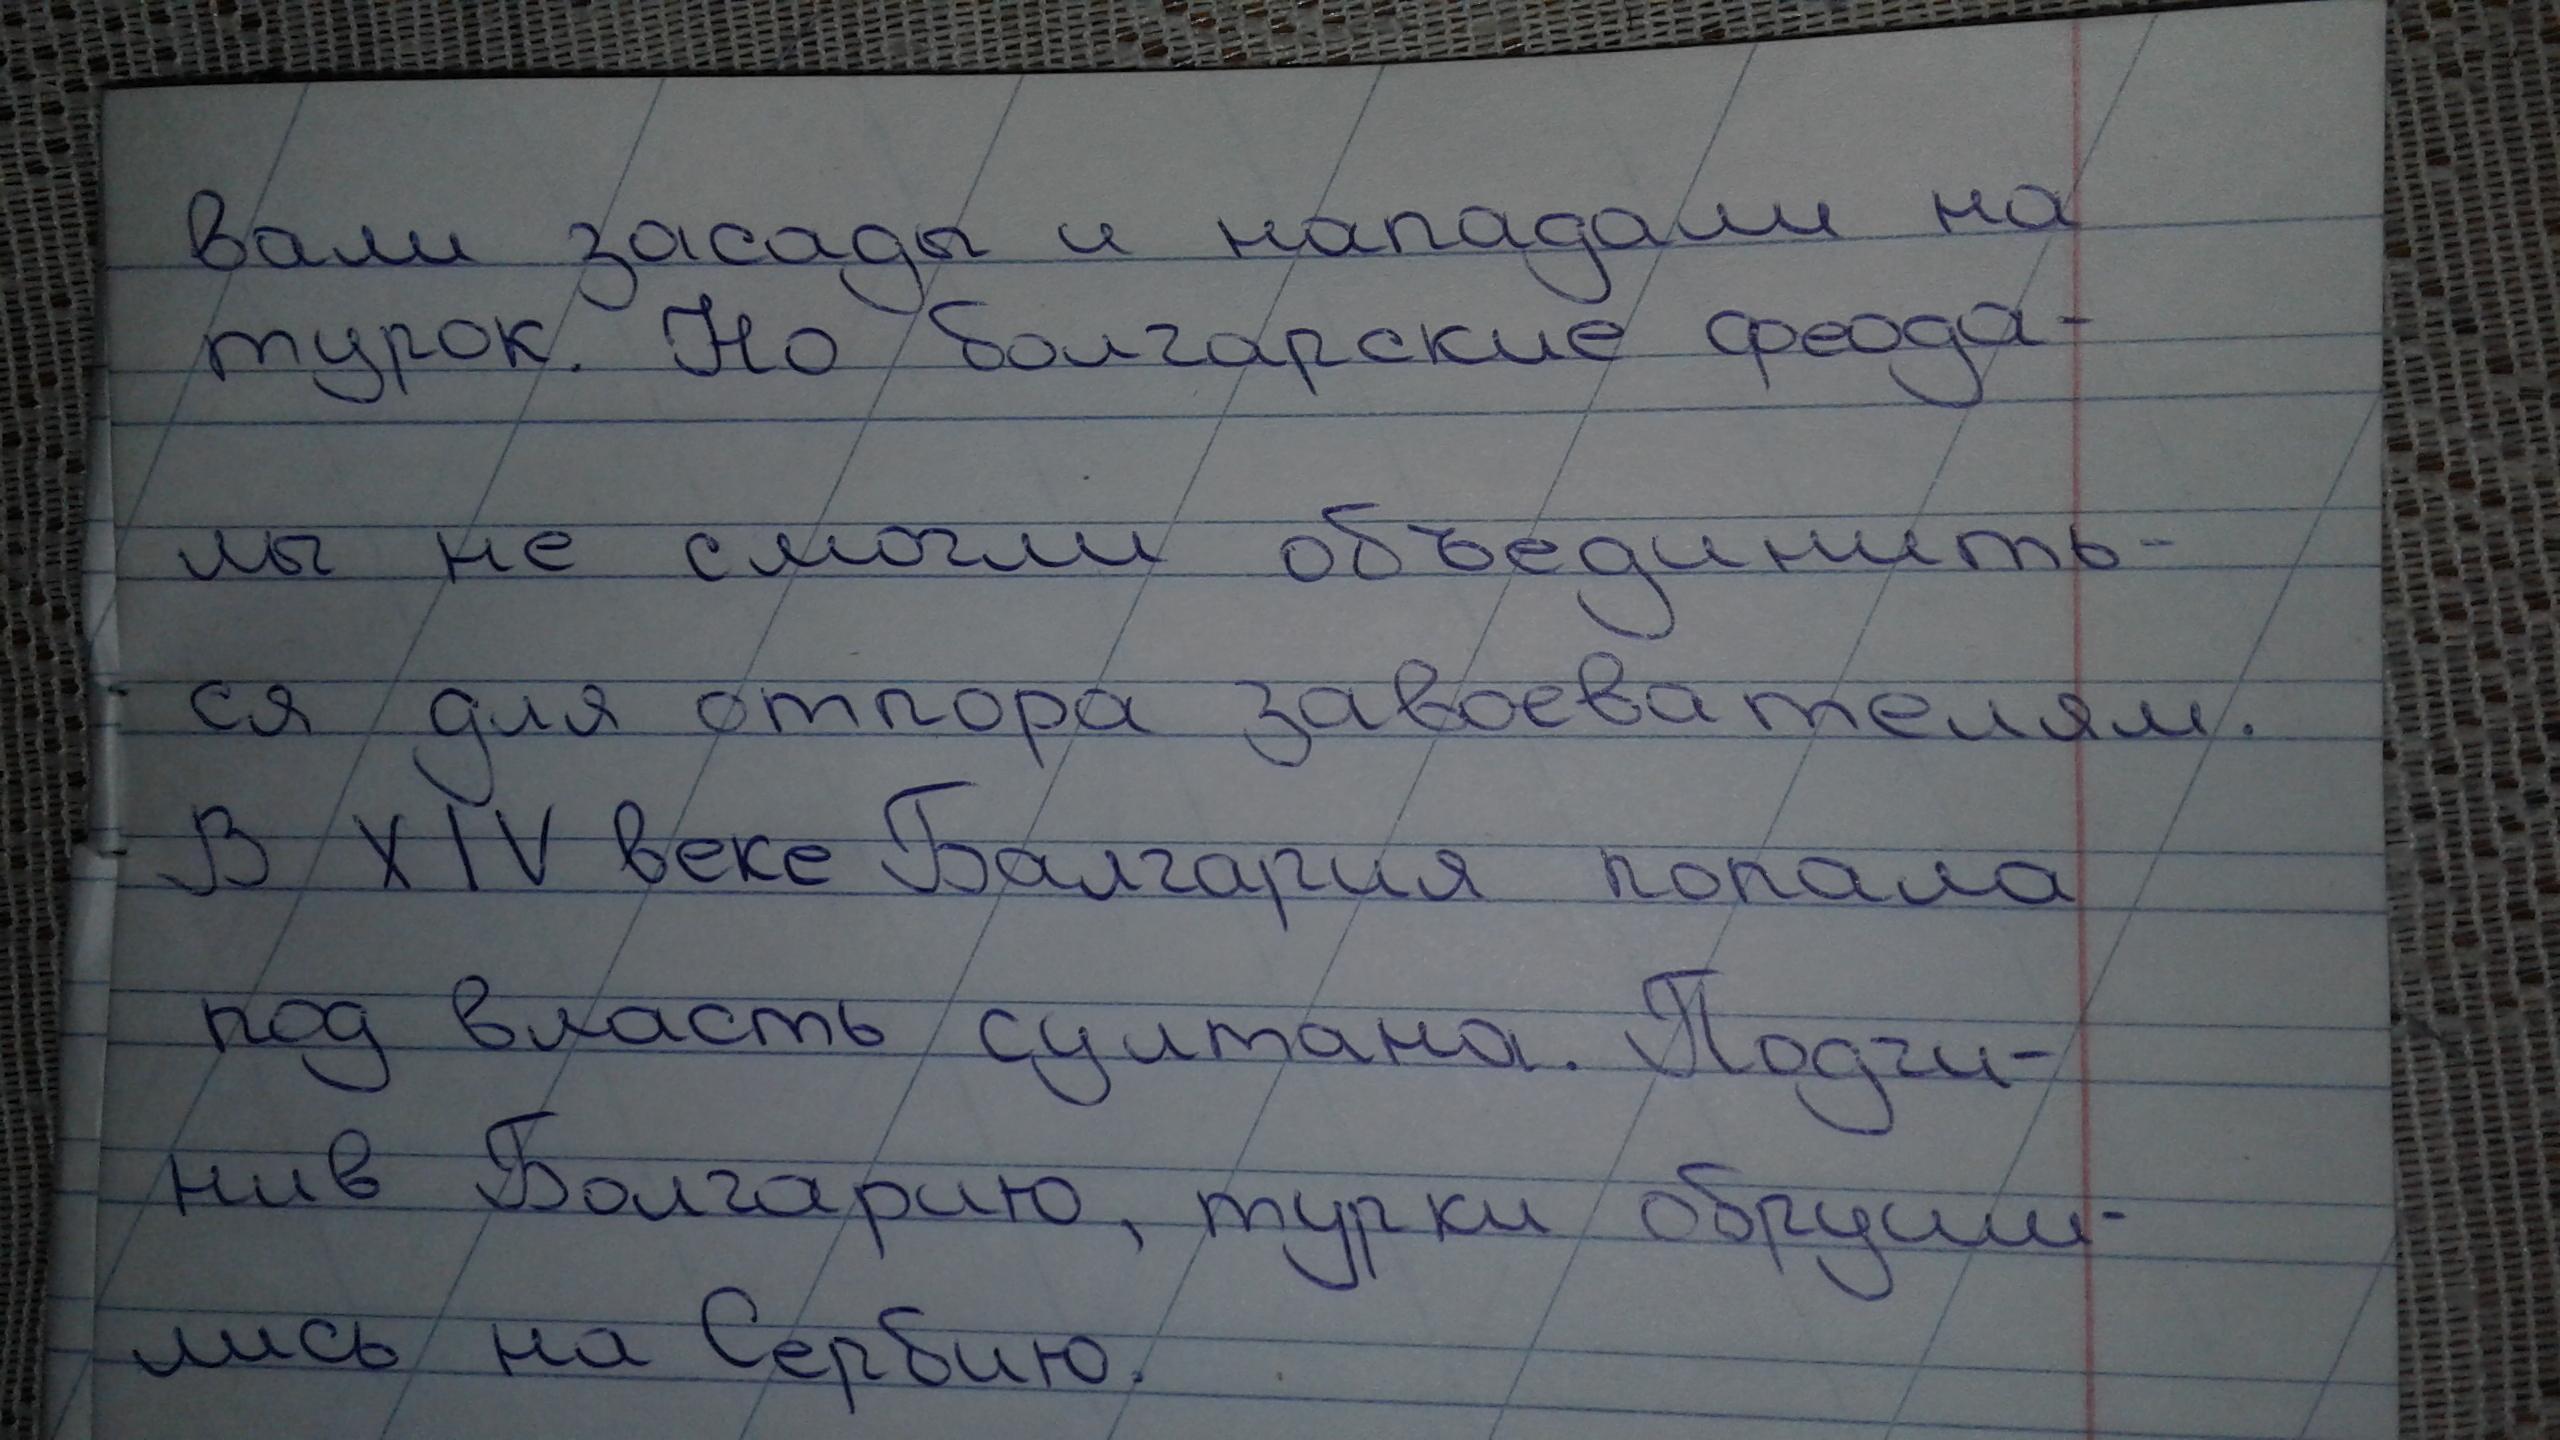 вали засады и нападали на
турок. Но болгарские феода-
лы не смогли объединить-
ся для отпора завоевателям.
В XIV веке Балгария попала
под власть султана. Подчи-
нив Болгарию, турки обруши-
лись на Сербию.